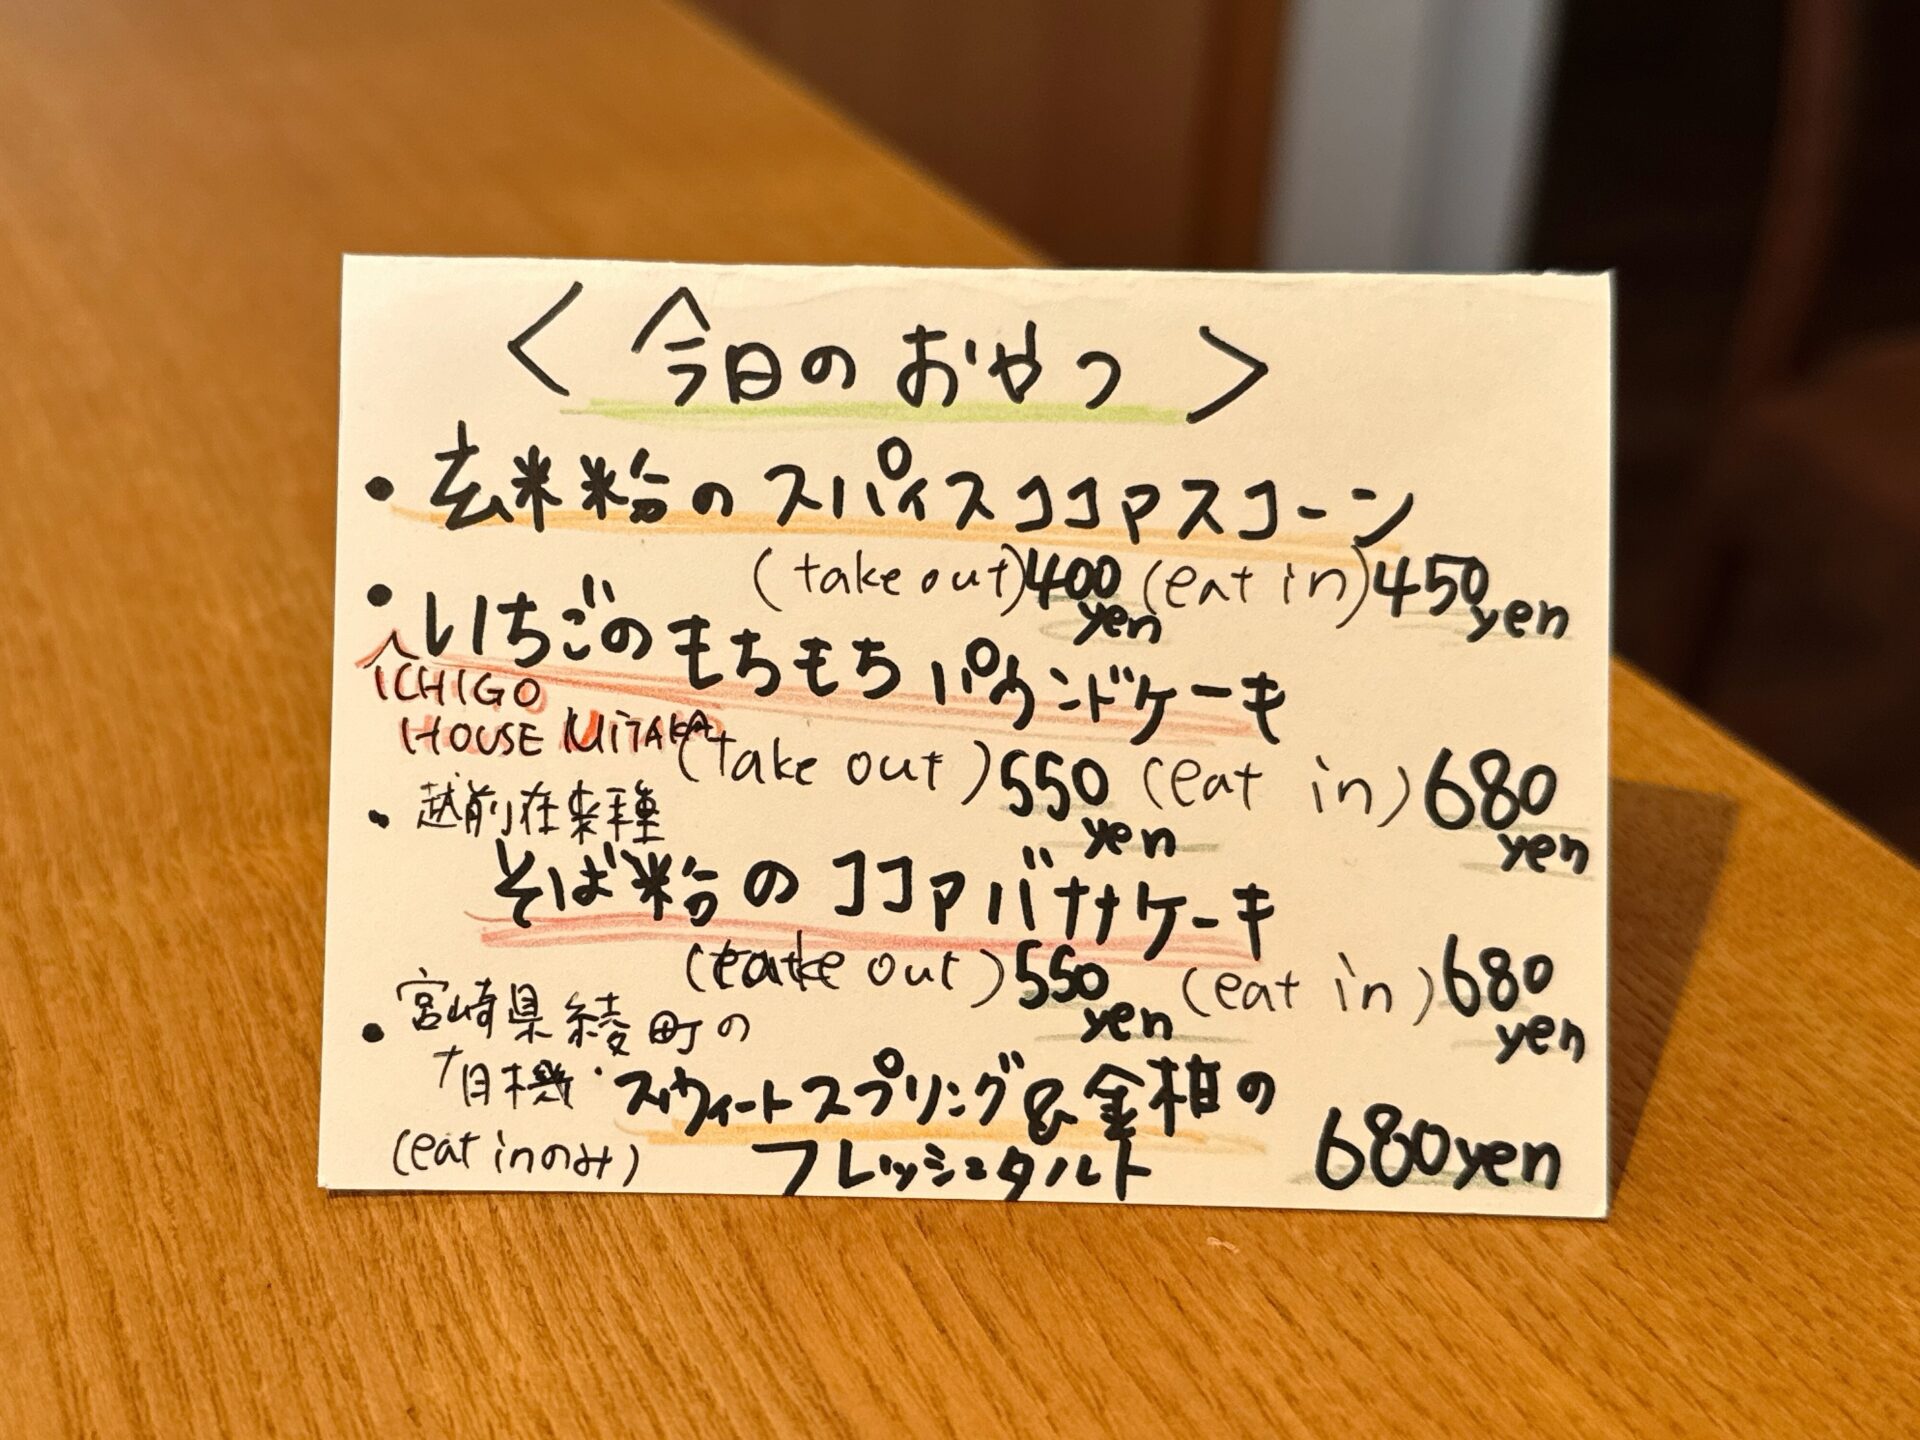 < 今日のおやつ >
・玄米粉のスパイスココアスコーン
(take out) 400yen (eat in) 450yen
・いちごのもちもちパウンドケーキ
ICHIGO
HOUSE MiTAKA
(take out) 550yen (eat in) 680yen
・越前在来種
そば粉のココアバナナケーキ
(take out) 550yen (eat in) 680yen
・宮崎県綾町の
有機・スウィートスプリング&金柑の
(eat inのみ) フレッシュタルト 680yen